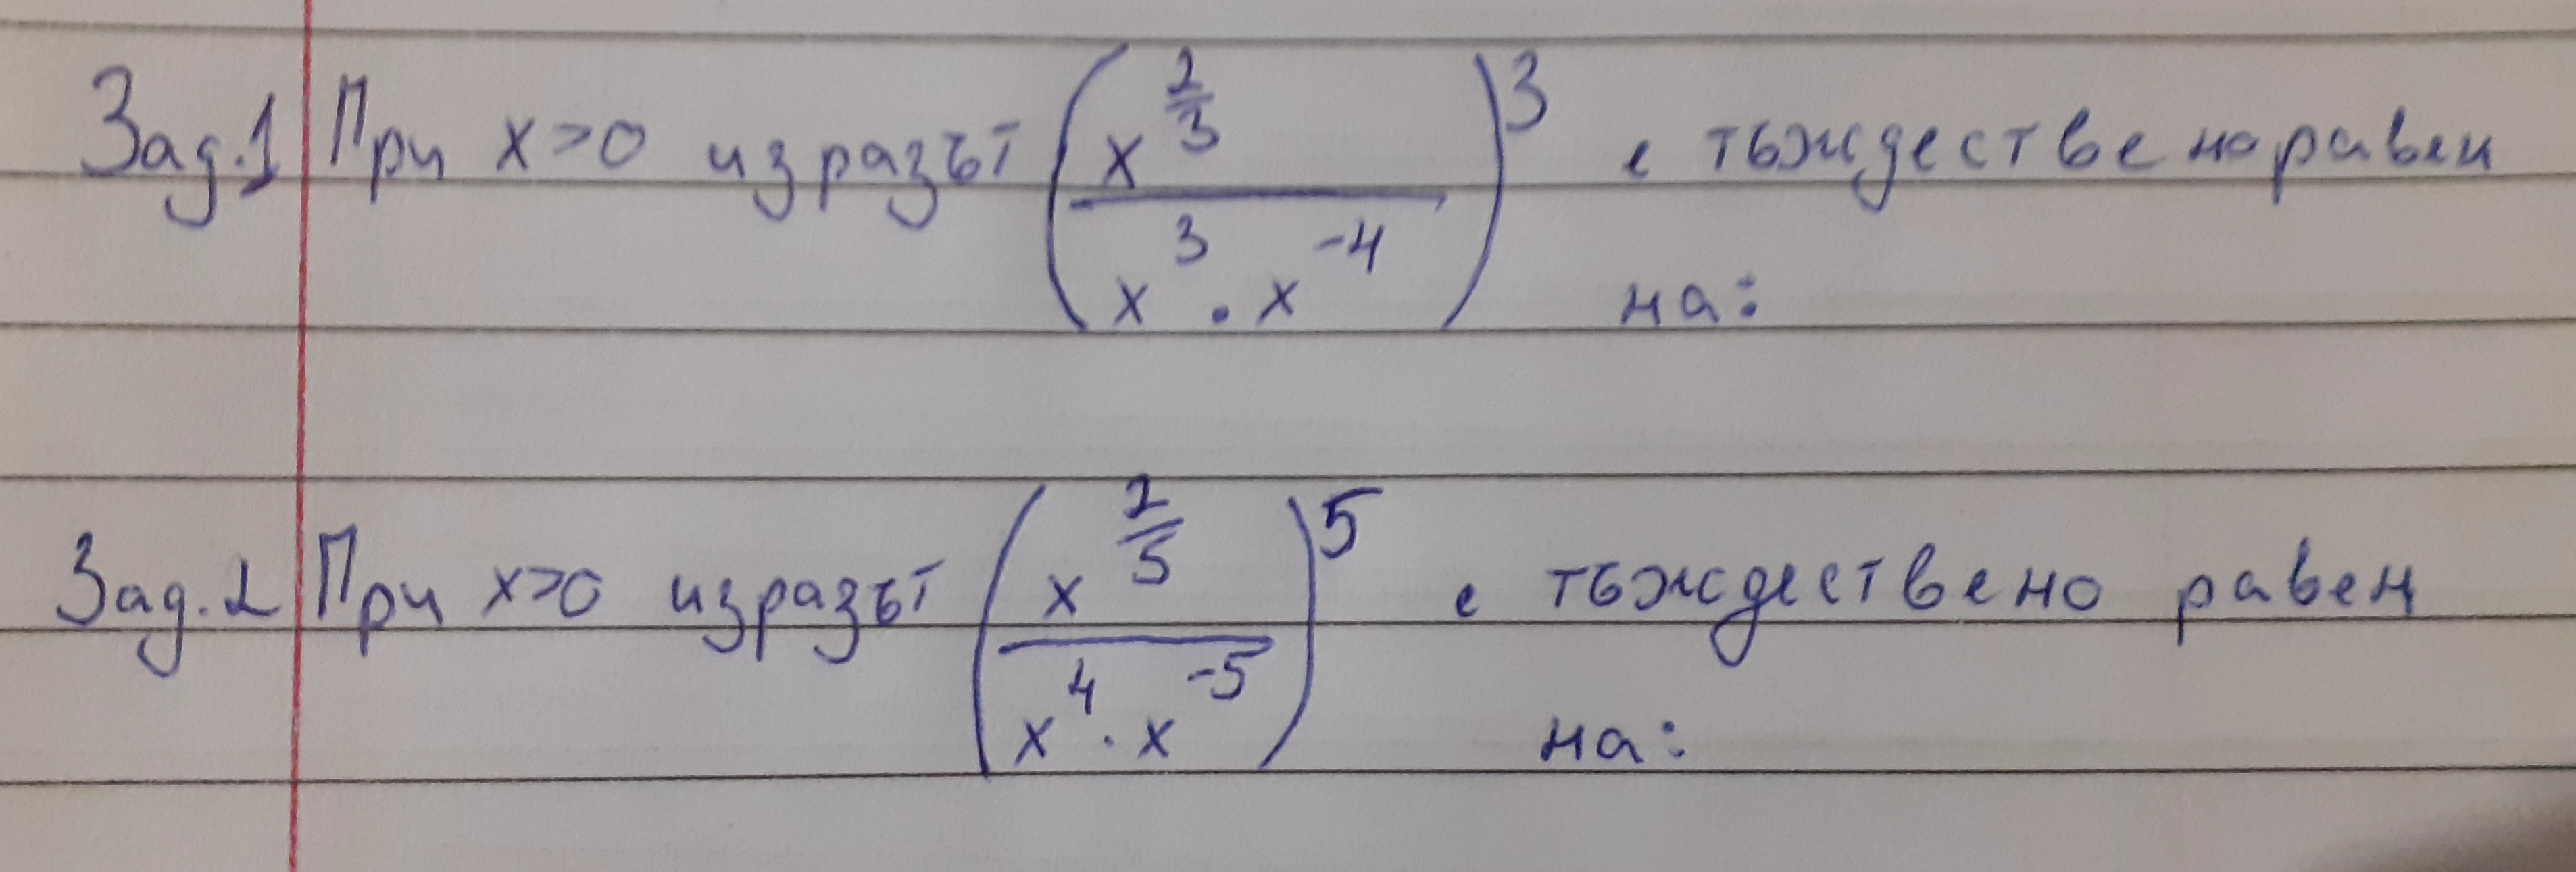 Зад.1 При x>0 изразът (x^(2/3) / (x^3 . x^-4))^3 е тъждествено равен
на:
Зад.2 При x>0 изразът (x^(2/5) / (x^4 . x^-5))^5 е тъждествено равен
на: